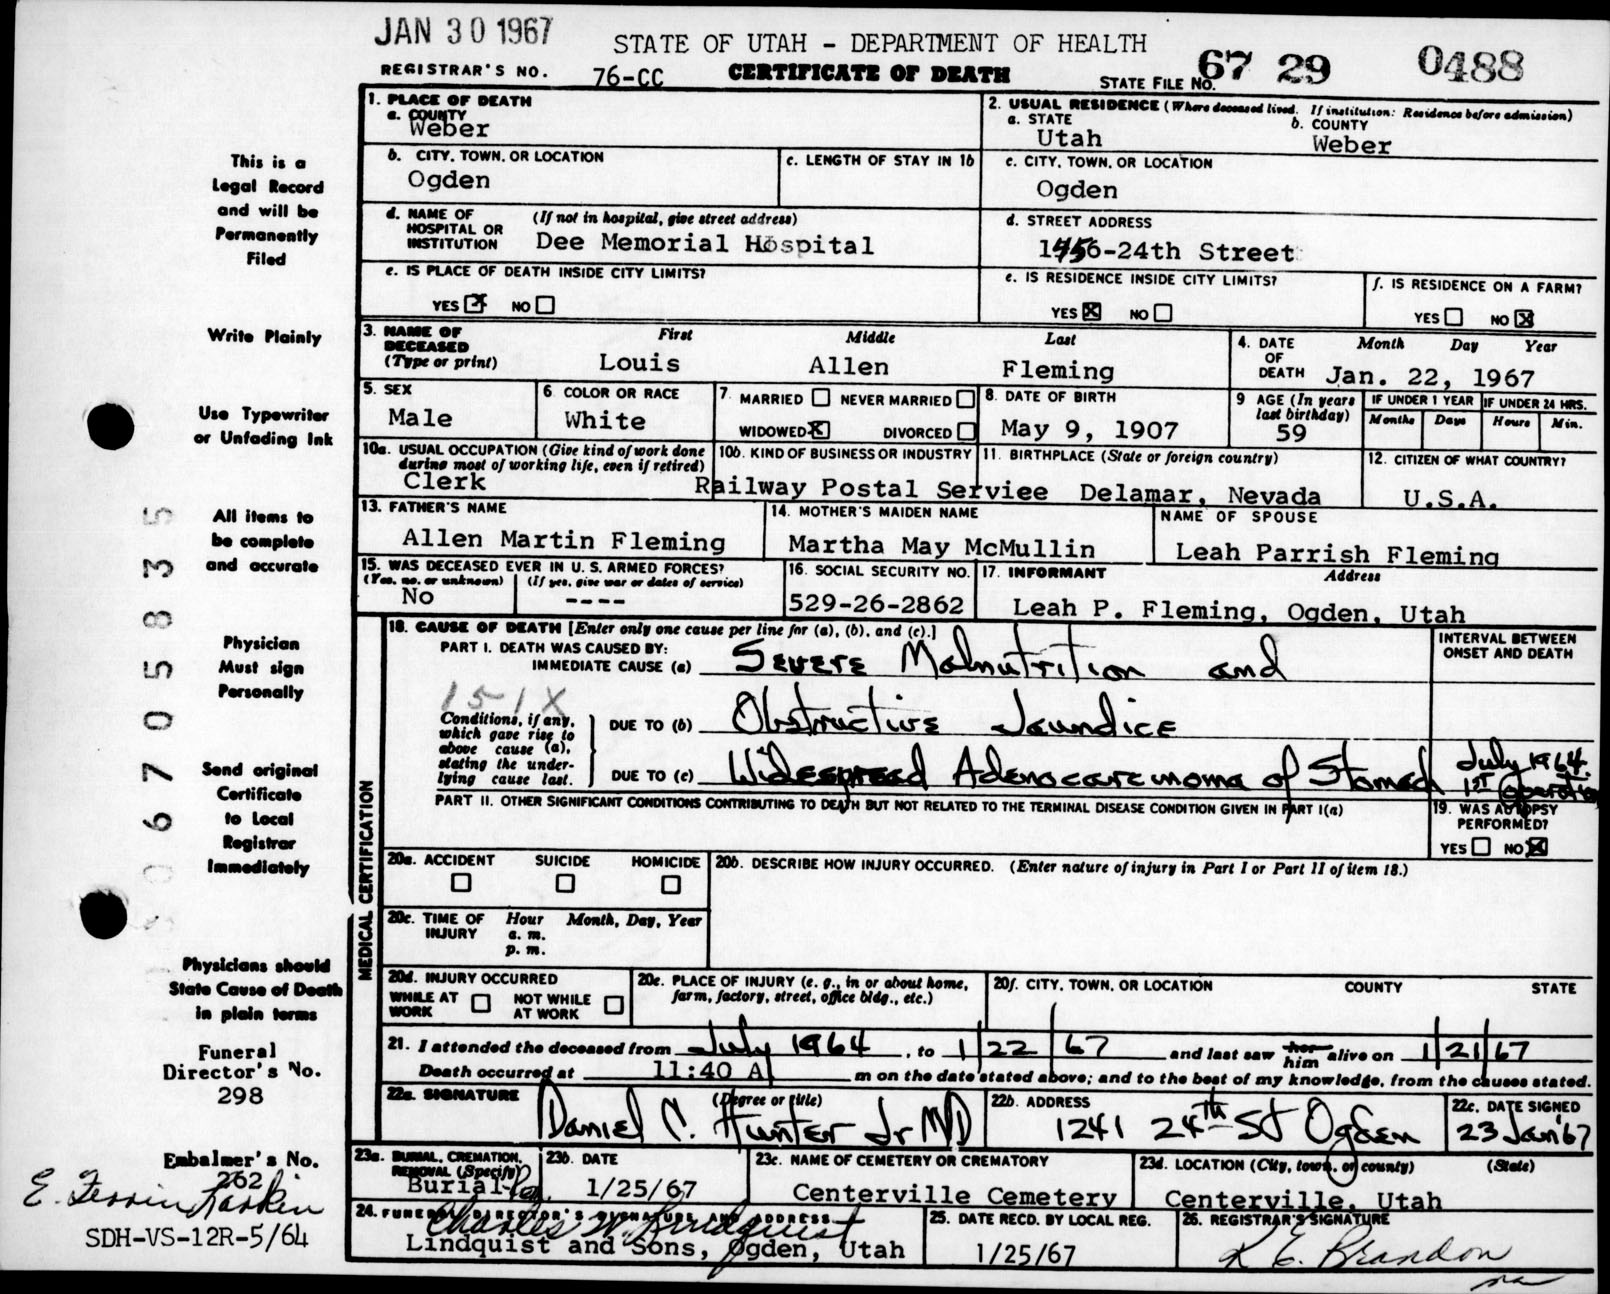 JAN 30 1967
STATE OF UTAH - DEPARTMENT OF HEALTH
REGISTRAR'S NO. 76-CC CERTIFICATE OF DEATH STATE FILE NO. 67 29 0488
This is a
Legal Record
and will be
Permanently
Filed
Write Plainly
Use Typewriter
or Unfading Ink
All items to
be complete
and accurate
Physician
Must sign
Personally
Send original
Certificate
to Local
Registrar
Immediately
Physicians should
State Cause of Death
in plain terms
Funeral
Director's No.
298
Embalmer's No.
262
E. Ferrin Larkin
SDH-VS-12R-5/64
06705835
1. PLACE OF DEATH
a. COUNTY
Weber
2. USUAL RESIDENCE (Where deceased lived. If institution: Residence before admission)
a. STATE b. COUNTY
Utah Weber
b. CITY, TOWN, OR LOCATION c. LENGTH OF STAY IN 1b
Ogden
c. CITY, TOWN, OR LOCATION
Ogden
d. NAME OF HOSPITAL OR INSTITUTION (If not in hospital, give street address)
Dee Memorial Hospital
d. STREET ADDRESS
1456-24th Street
e. IS PLACE OF DEATH INSIDE CITY LIMITS?
YES X NO
e. IS RESIDENCE INSIDE CITY LIMITS?
YES X NO
f. IS RESIDENCE ON A FARM?
YES NO X
3. NAME OF DECEASED (Type or print) First Middle Last
Louis Allen Fleming
4. DATE OF DEATH Month Day Year
Jan. 22, 1967
5. SEX
Male
6 COLOR OR RACE
White
7. MARRIED NEVER MARRIED
WIDOWED X DIVORCED
8. DATE OF BIRTH
May 9, 1907
9 AGE (In years last birthday)
59
IF UNDER 1 YEAR IF UNDER 24 HRS.
Months Days Hours Min.
10a. USUAL OCCUPATION (Give kind of work done during most of working life, even if retired)
Clerk
10b. KIND OF BUSINESS OR INDUSTRY
Railway Postal Serviee
11. BIRTHPLACE (State or foreign country)
Delamar, Nevada
12. CITIZEN OF WHAT COUNTRY?
U.S.A.
13. FATHER'S NAME
Allen Martin Fleming
14. MOTHER'S MAIDEN NAME
Martha May McMullin
NAME OF SPOUSE
Leah Parrish Fleming
15. WAS DECEASED EVER IN U. S. ARMED FORCES?
(Yes, no, or unknown) (If yes, give war or dates of service)
No ----
16. SOCIAL SECURITY NO.
529-26-2862
17. INFORMANT Address
Leah P. Fleming, Ogden, Utah
MEDICAL CERTIFICATION
18. CAUSE OF DEATH [Enter only one cause per line for (a), (b), and (c).]
PART I. DEATH WAS CAUSED BY:
IMMEDIATE CAUSE (a) Severe Malnutrition and
INTERVAL BETWEEN ONSET AND DEATH
151X
Conditions, if any, which gave rise to above cause (a), stating the underlying cause last.
DUE TO (b) Obstructive Jaundice
DUE TO (c) Widespread Adenocarcinoma of Stomach
July 1964
1st Operation
PART II. OTHER SIGNIFICANT CONDITIONS CONTRIBUTING TO DEATH BUT NOT RELATED TO THE TERMINAL DISEASE CONDITION GIVEN IN PART I(a)
19. WAS AUTOPSY PERFORMED?
YES NO X
20a. ACCIDENT SUICIDE HOMICIDE
20b. DESCRIBE HOW INJURY OCCURRED. (Enter nature of injury in Part I or Part II of item 18.)
20c. TIME OF INJURY Hour Month, Day, Year
a. m.
p. m.
20d. INJURY OCCURRED
WHILE AT WORK NOT WHILE AT WORK
20e. PLACE OF INJURY (e. g., in or about home, farm, factory, street, office bldg., etc.)
20f. CITY, TOWN, OR LOCATION COUNTY STATE
21. I attended the deceased from July 1964, to 1/22/67 and last saw her him alive on 1/21/67
Death occurred at 11:40 A m on the date stated above; and to the best of my knowledge, from the causes stated.
22a. SIGNATURE (Degree or title)
Daniel C. Hunter Jr MD
22b. ADDRESS
1241 24th St Ogden
22c. DATE SIGNED
23 Jan '67
23a. BURIAL, CREMATION, REMOVAL (Specify)
Burial
23b. DATE
1/25/67
23c. NAME OF CEMETERY OR CREMATORY
Centerville Cemetery
23d. LOCATION (City, town, or county) (State)
Centerville, Utah
24. FUNERAL DIRECTOR'S SIGNATURE AND ADDRESS
Charles W. Lindquist
Lindquist and Sons, Ogden, Utah
25. DATE RECD. BY LOCAL REG.
1/25/67
26. REGISTRAR'S SIGNATURE
R E. Brandon